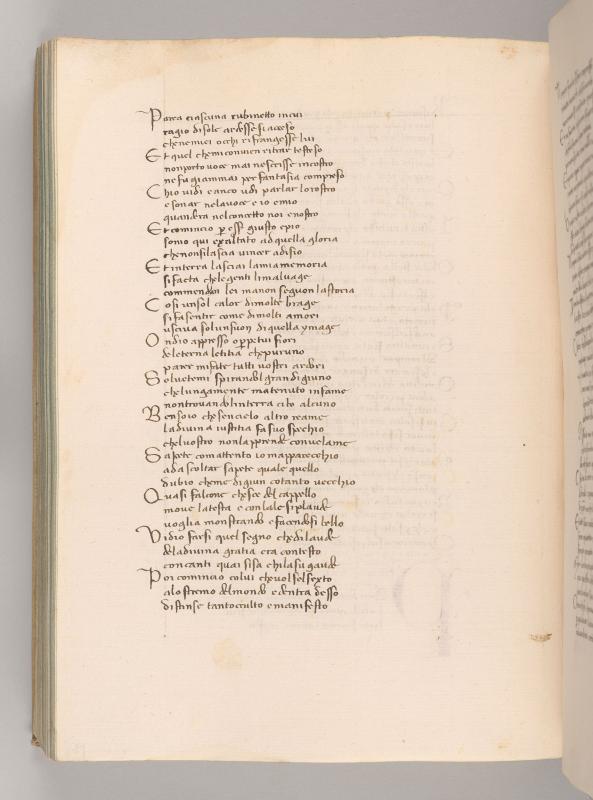 Parea ciascuna rubinetto incui
ragio disole ardesse siacceso
chenemiei occhi rifrangesse lui
Et quel chemiconvien ritrar testeso
nonporto voce mai nescrisse incostro
ne fu giammai per fantasia compreso
Chio vidi eanco udi parlar lorostro
esonar nelavoce e io emio
quandera nelconcetto noi enostro
Et comincio per esser giusto epio
sono qui exaltato adquella gloria
chenonsilascia vincer adisio
Et interra lasciai lamiamemoria
sifacta chelegenti limalvage
commendan lei manon seguon lastoria
Cosi unsol calor dimolte brage
sifasentir come dimolti amori
usciva solunsuon diquella ymage
Ondio appresso operpetui fiori
deleterna letitia chepuruno
parer mifate tutti vostri ardori
Solvetemi spirando lgrandigiuno
chelungamente matenuto infame
nontrovandoli interra cibo alcuno
Bensoio chesencielo altro reame
ladivina iustitia fasuo spechio
chelvostro nonlapprende convelame
Sapete comattento iomapparecchio
adascoltar sapete quale quello
dubio cheme digiun cotanto vecchio
Quasi falcone chesce delcappello
move latesta e conlale siplaude
voglia monstrando efacendosi bello
Vidio farsi quel segno chedilaude
deladivina gratia era contesto
concanti quai sisa chilasu gaude
Poi comincio colui chevolselsexto
alostremo delmondo edentra desso
distinse tantocculto emanifesto